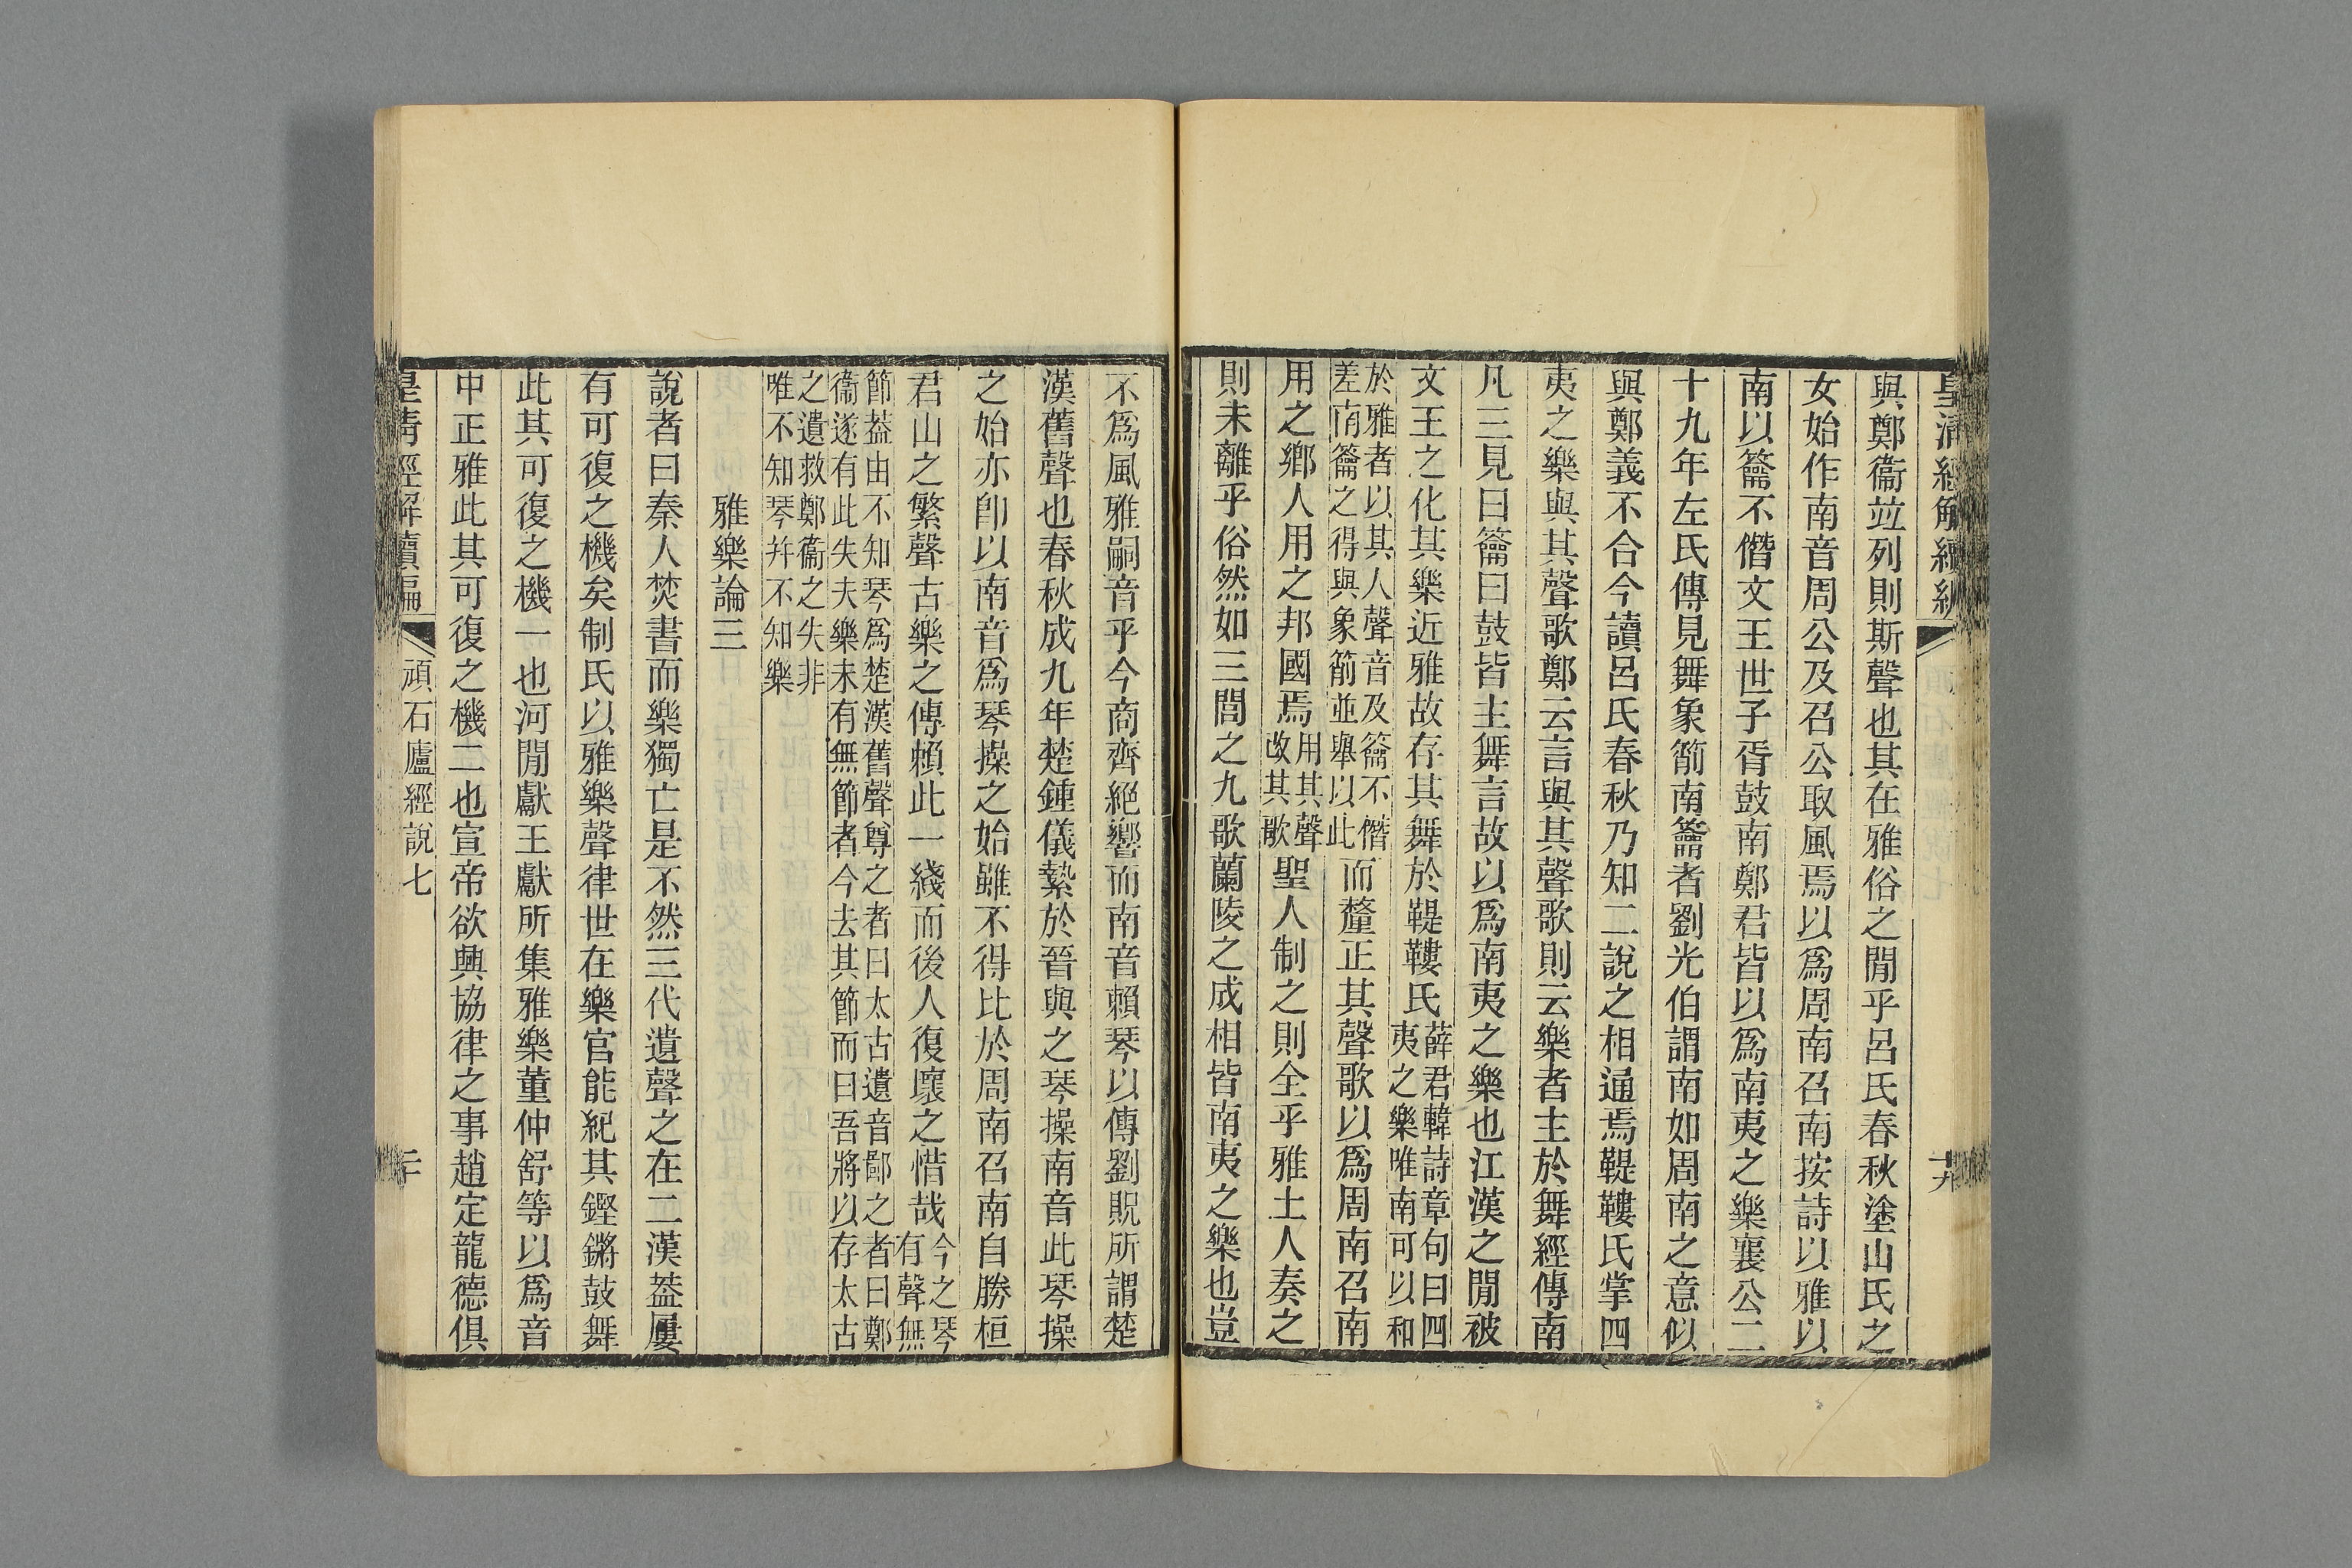 皇清經解續編
十九
與鄭衞竝列則斯聲也其在雅俗之閒乎呂氏春秋塗山氏之
女始作南音周公及召公取風焉以爲周南召南按詩以雅以
南以籥不僭文王世子胥鼓南鄭君皆以爲南夷之樂襄公二
十九年左氏傳見舞象箾南籥者劉光伯謂南如周南之意似
與鄭義不合今讀呂氏春秋乃知二說之相通焉鞮鞻氏掌四
夷之樂與其聲歌鄭云言與其聲歌則云樂者主於舞經傳南
凡三見曰籥曰鼓皆主舞言故以爲南夷之樂也江漢之閒被
文王之化其樂近雅故存其舞於鞮鞻氏薛君韓詩章句曰四夷之樂唯南可以和
於雅者以其人聲音及籥不僭差南籥之得與象箾並舉以此而釐正其聲歌以爲周南召南
用之鄉人用之邦國焉用其聲改其歌聖人制之則全乎雅土人奏之
則未離乎俗然如三閭之九歌蘭陵之成相皆南夷之樂也豈
不爲風雅嗣音乎今商齊絕響而南音賴琴以傳劉貺所謂楚
漢舊聲也春秋成九年楚鍾儀縶於晉與之琴操南音此琴操
之始亦卽以南音爲琴操之始雖不得比於周南召南自勝桓
君山之繁聲古樂之傳賴此一綫而後人復壞之惜哉今之琴有聲無
節葢由不知琴爲楚漢舊聲尊之者曰太古遺音鄙之者曰鄭衞遂有此失夫樂未有無節者今去其節而曰吾將以存太古
之遺救鄭衞之失非唯不知琴幷不知樂
雅樂論三
說者曰秦人焚書而樂獨亡是不然三代遺聲之在二漢葢屢
有可復之機矣制氏以雅樂聲律世在樂官能紀其鏗鏘鼓舞
此其可復之機一也河閒獻王獻所集雅樂董仲舒等以爲音
中正雅此其可復之機二也宣帝欲興協律之事趙定龍德俱
皇清經解續編
頑石廬經說七
二十